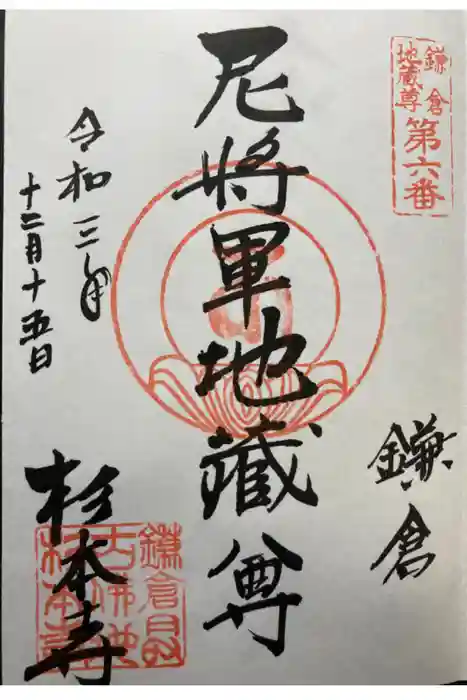 鎌倉
地蔵尊
第六番
鎌倉
尼将軍地蔵尊
令和三年
十二月十五日
杉本寺